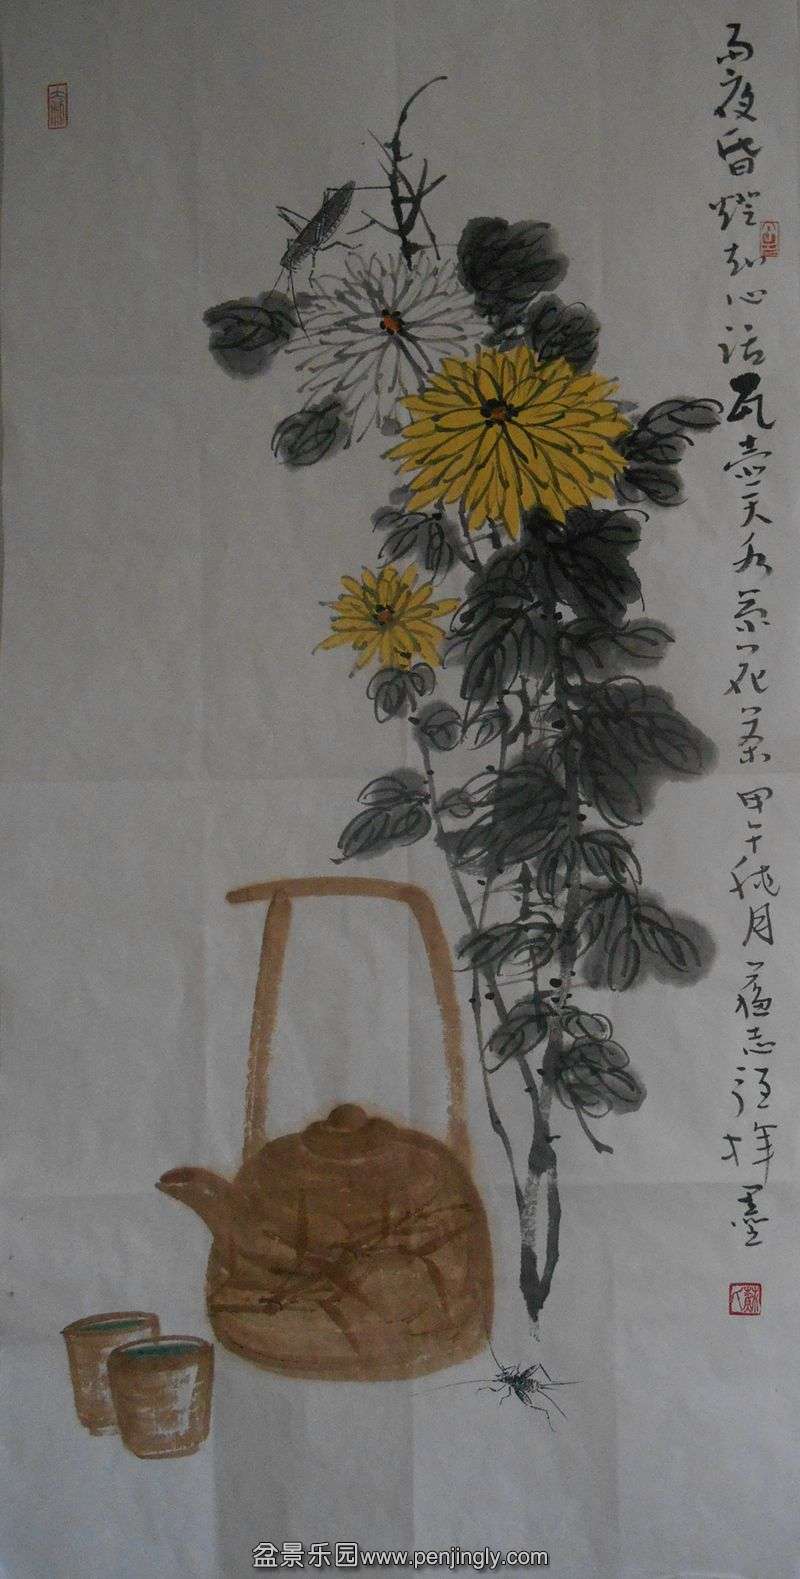 雨夜昏燈知心話瓦壺天水菊花茶甲午秋月蘇志強揮墨
盆景乐园www.penjingly.com